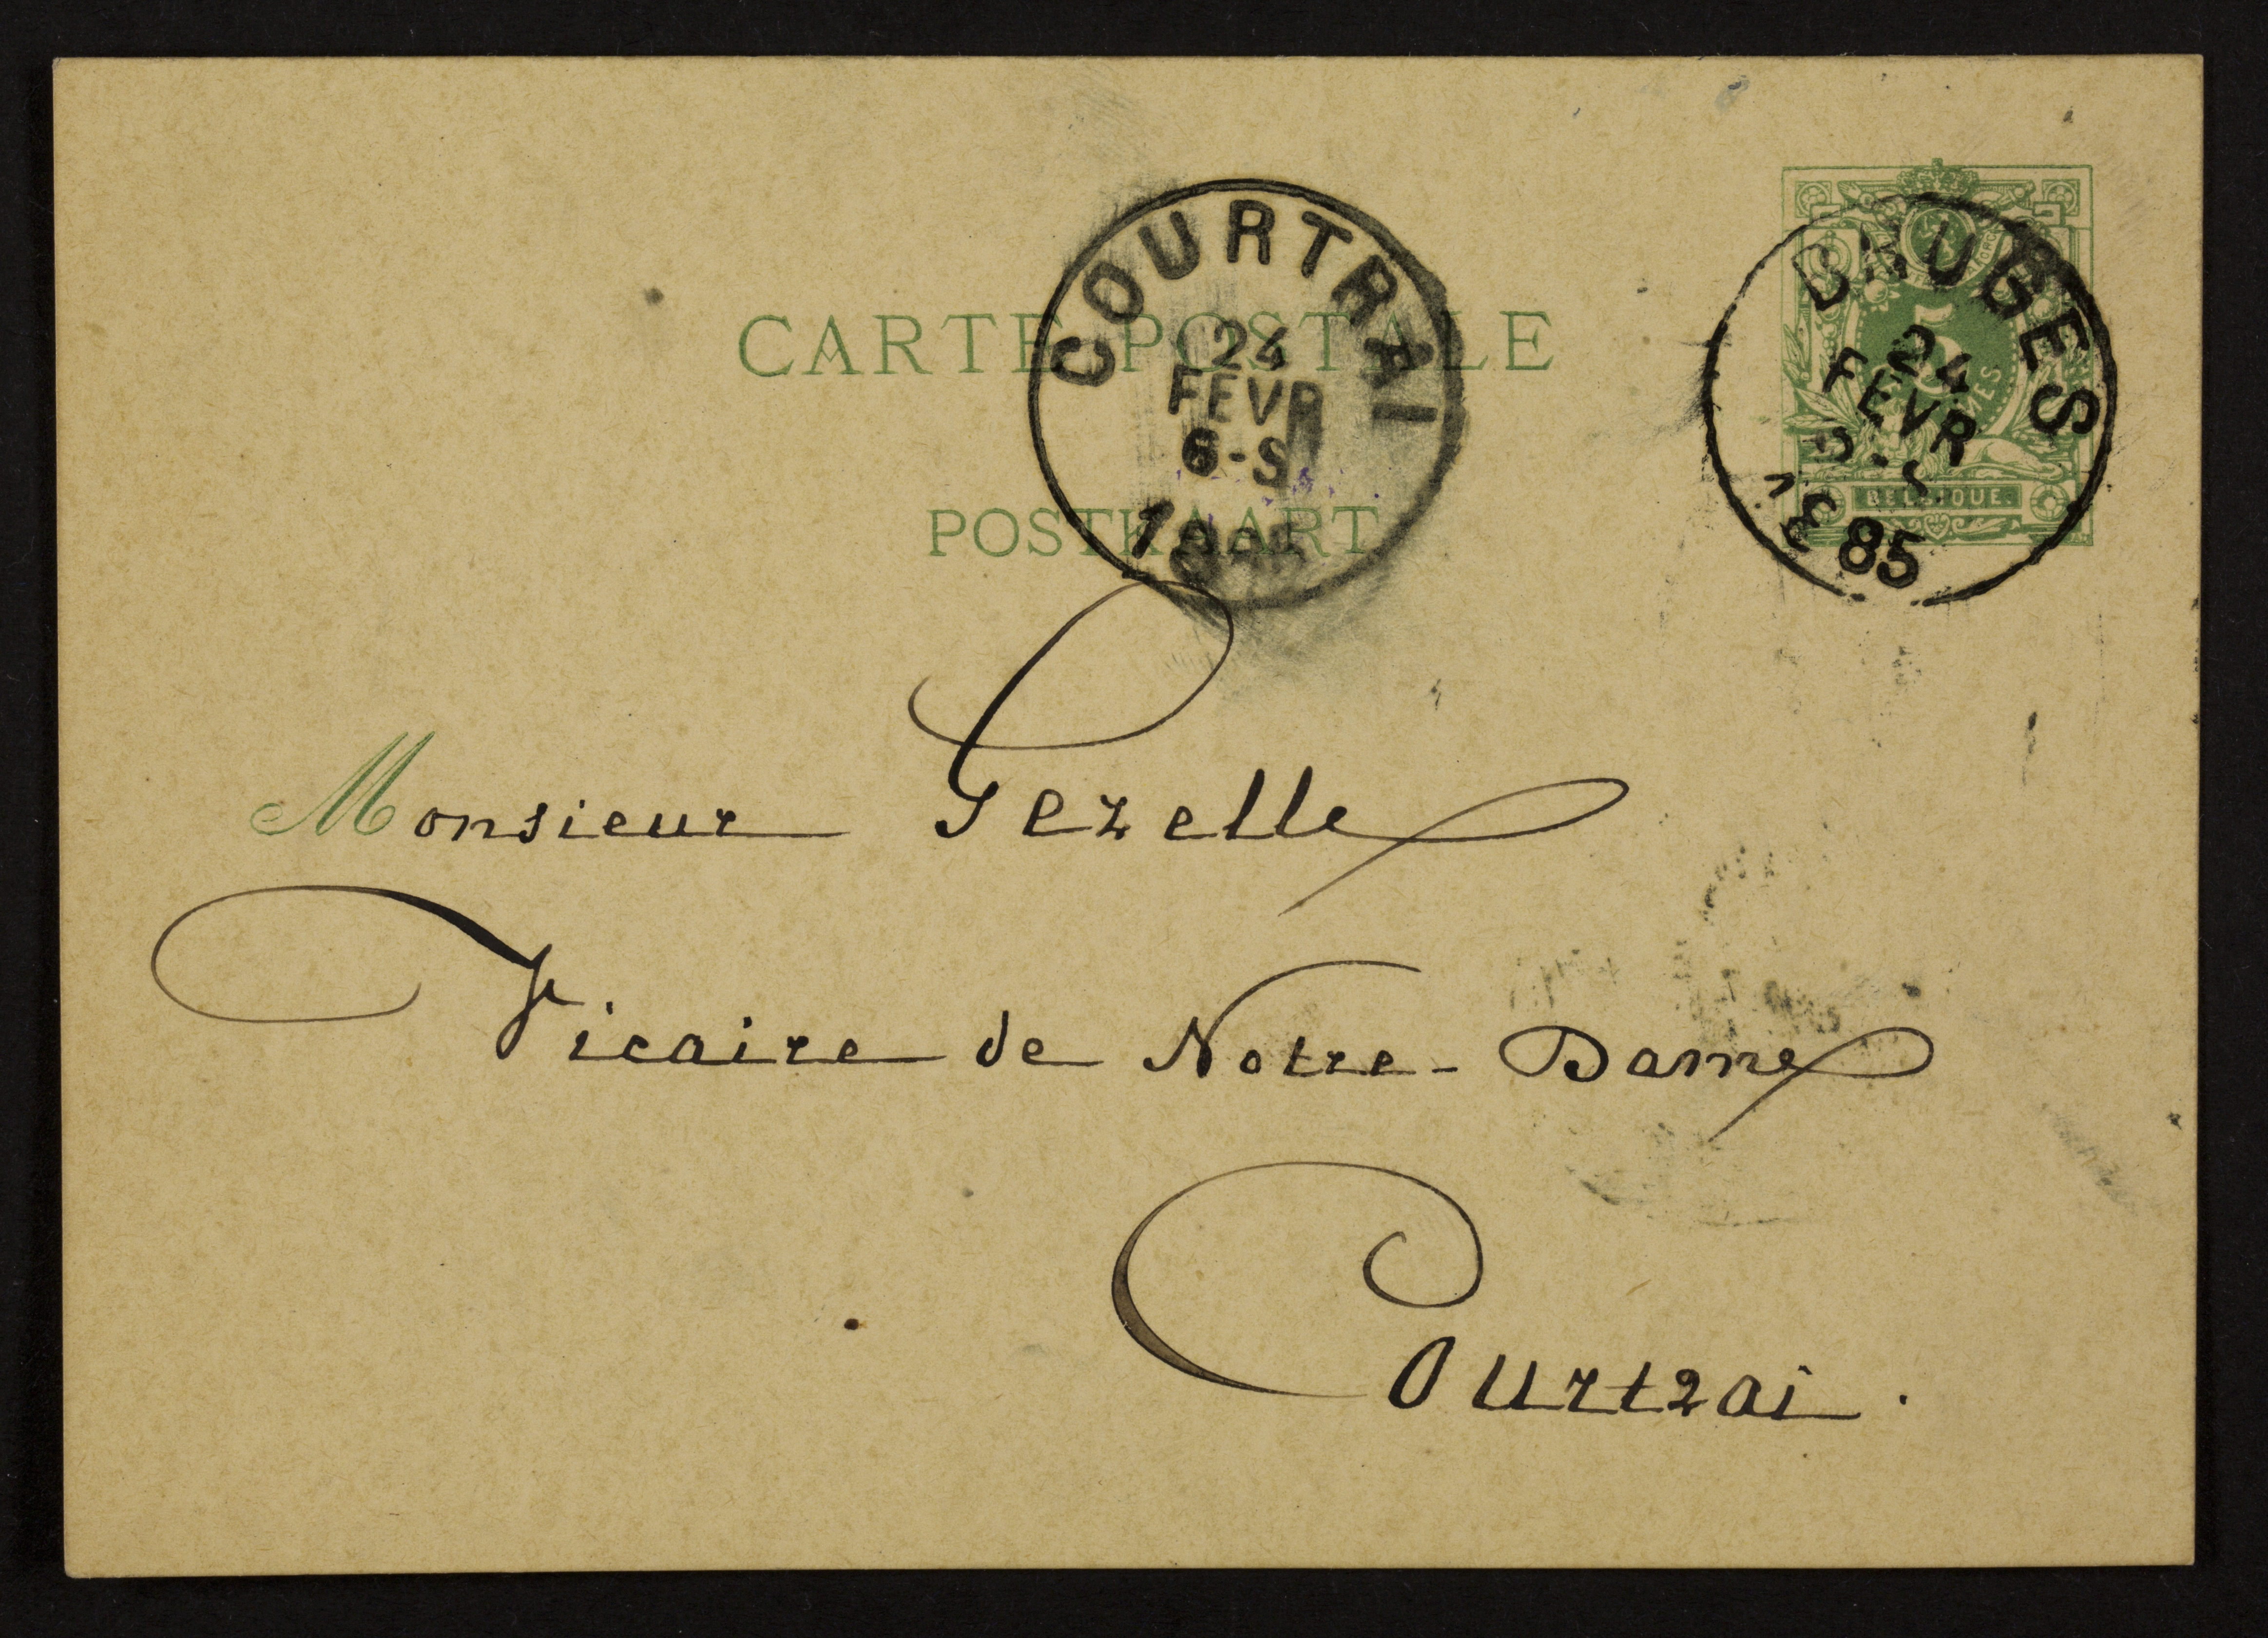 CARTE POSTALE
POSTKAART
COURTRAI
24
FEVR
6-S
BRUGES
24
FEVR
1885
5
BELGIQUE.
Monsieur Gezelle
Vicaire de Notre-Dame
Courtrai.